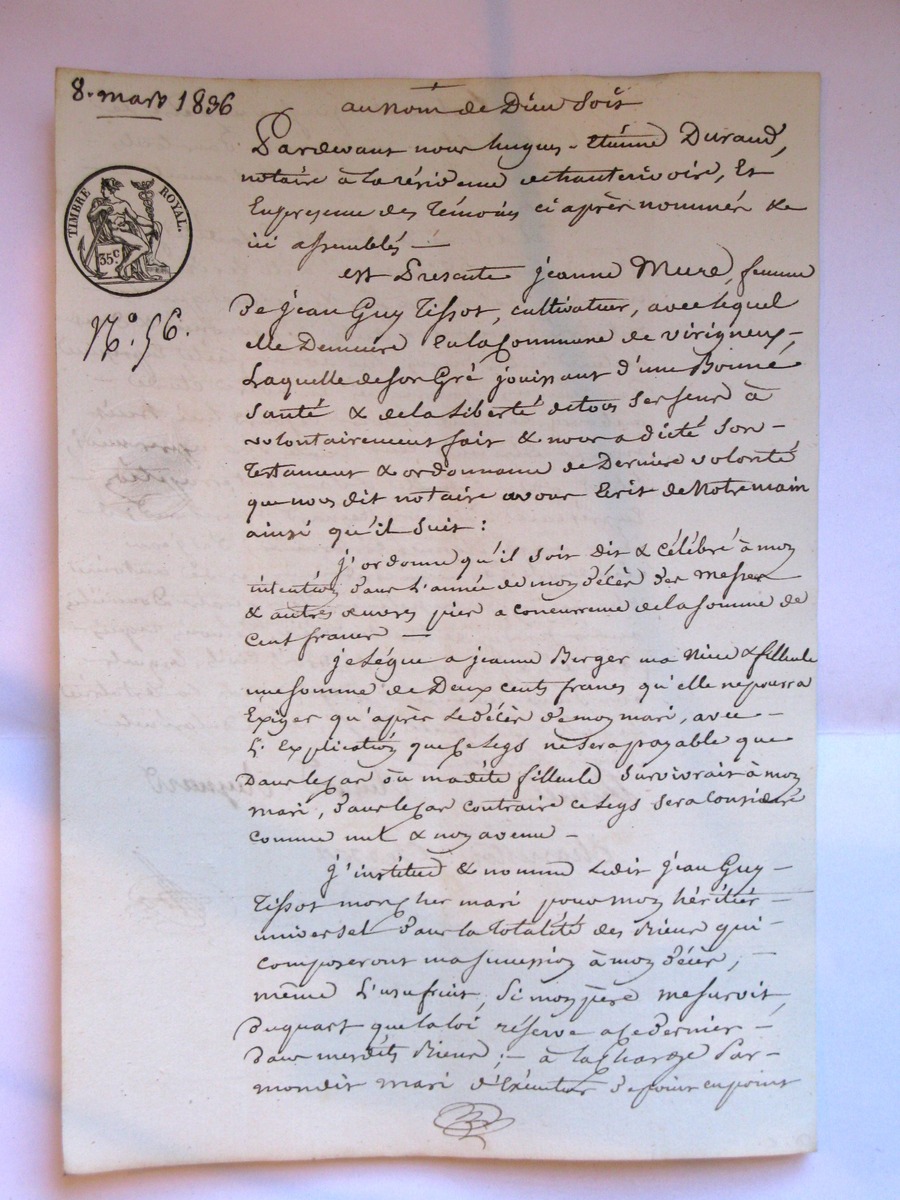 8. mars 1836
au nom de Dieu Soit
TIMBRE ROYAL.
35 c
N.º 56.
Pardevant nous hugues-Etienne Durand,
notaire à la résidence de hauterivoire, Et
En presence des Témoins ci après nommés &
ici assemblés —
est Présente jeanne Mure, femme
De jean Guy Tissot, cultivateur, avec lequel
elle Demeure En la Commune de virigneux,
Laquelle de son Gré jouissant d'une Bonne
Santé & de la Liberté de tous Ses Sens à
volontairement fait & nous a dicté Son
Testament & ordonnance de Derniere volonté
que nous dit notaire avons Ecrit de Notre main
ainsi qu'il Suit :
j'ordonne qu'il Soit dit & Célébré à mon
intention Dans L'année de mon Décès Des Messes
& autres œuvres pies a Concurrence de la Somme de
Cent francs —
je Légue a jeanne Berger ma Niéce & filleule
une Somme de Deux cents francs qu'elle ne pourra
Exiger qu'après Le Décès De mon mari, avec —
L'Explication que Ce Legs ne Sera payable que
Dans le Cas où madite filleule Survivrait à mon
mari, Dans le Cas contraire ce Legs Sera Considéré
Comme nul & non avenu —
j'institue & nomme Ledit jean Guy —
Tissot mon Cher mari pour mon héritier —
universel Dans La Totalité des Biens qui —
Composeront ma Succession à mon Décès, —
même L'usufruit, Si mon père me Survit,
Du quart que la loi réserve a Ce dernier —
Dans mesdits Biens ; — à la Charge Par —
mondit mari D'Exécuter De point en point